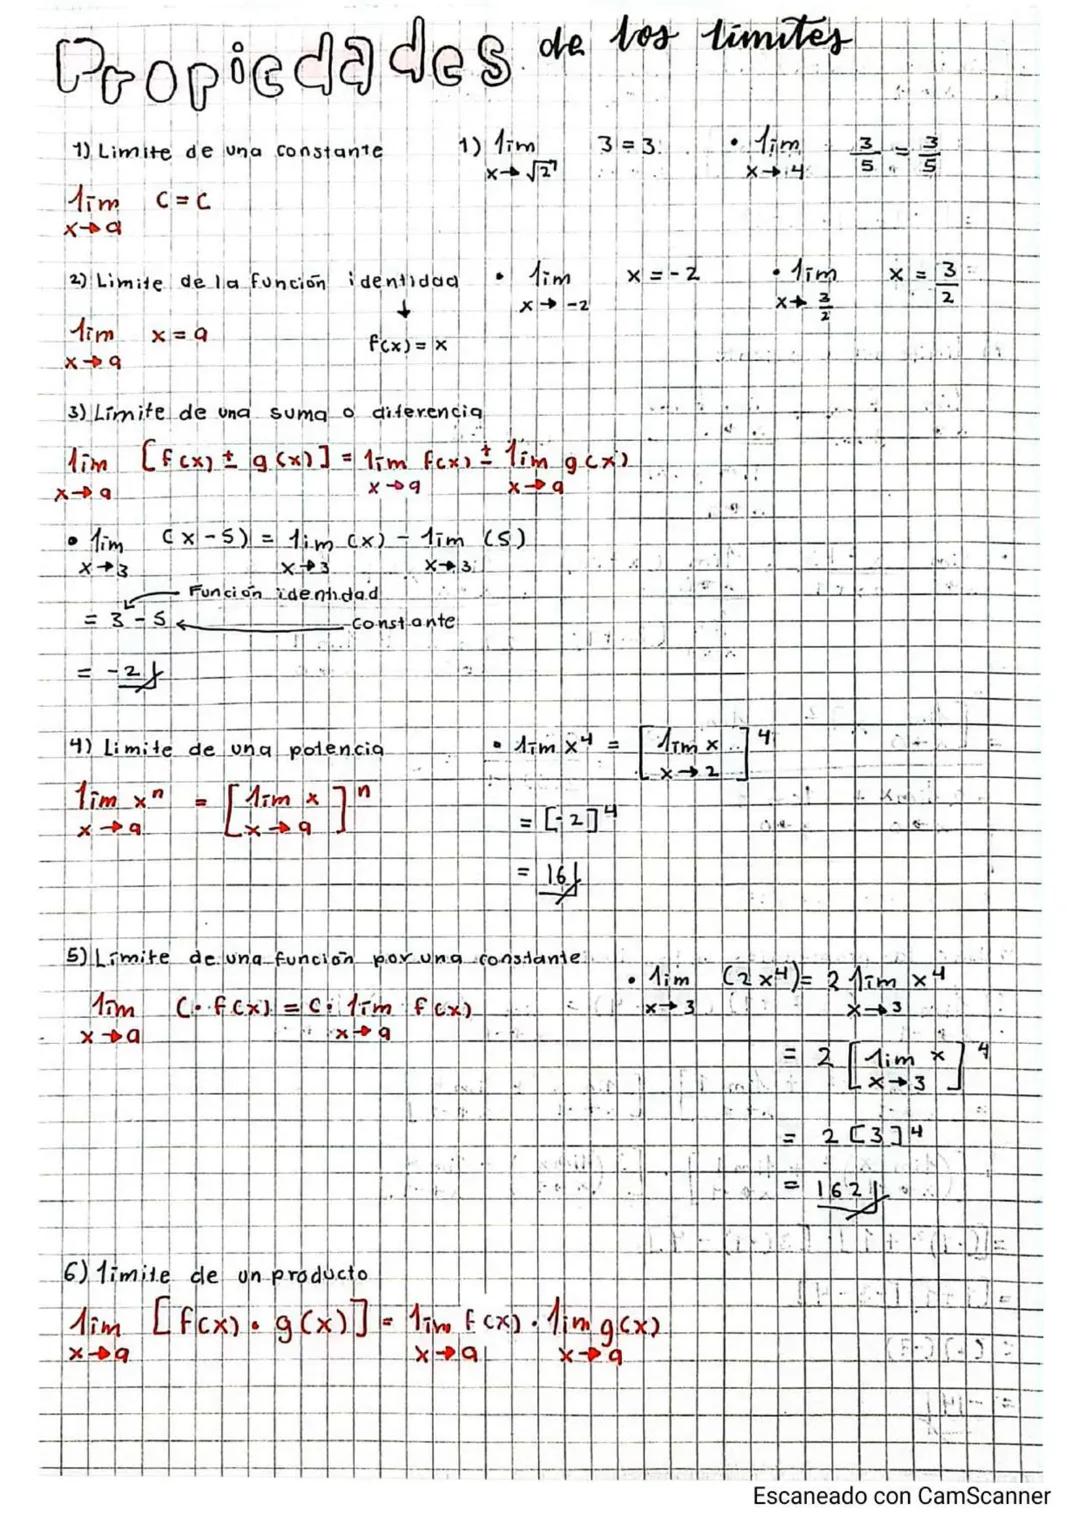 Propiedades de los límites
1) Límite de una constante
lim C = C
x→a
1) lim 3 = 3
x→√2
• lim 3/5 = 3/5
x→4
2) Límite de la función identidad
↓
f(x) = x
lim x = a
x→a
• lim x = -2
x→-2
• lim x = 3/2
x→3/2
3) Límite de una suma o diferencia
lim [f(x) ± g(x)] = lim f(x) ± lim g(x)
x→a x→a x→a
• lim (x-5) = lim (x) - lim (5)
x→3 x→3 x→3
Función identidad
= 3 - 5
constante
= -2
4) Límite de una potencia
lim xⁿ = [lim x]ⁿ
x→a x→a
• lim x⁴ = [lim x]⁴
x→2
= [-2]⁴
= 16
5) Límite de una función por una constante
lim C · f(x) = C · lim f(x)
x→a x→a
• lim (2x⁴) = 2 lim x⁴
x→3 x→3
= 2 [lim x]⁴
x→3
= 2 [3]⁴
= 162
6) límite de un producto
lim [f(x) · g(x)] = lim f(x) · lim g(x)
x→a x→a x→a
Escaneado con CamScanner